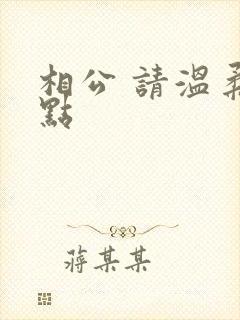 相公 請溫柔
點
蔣某某